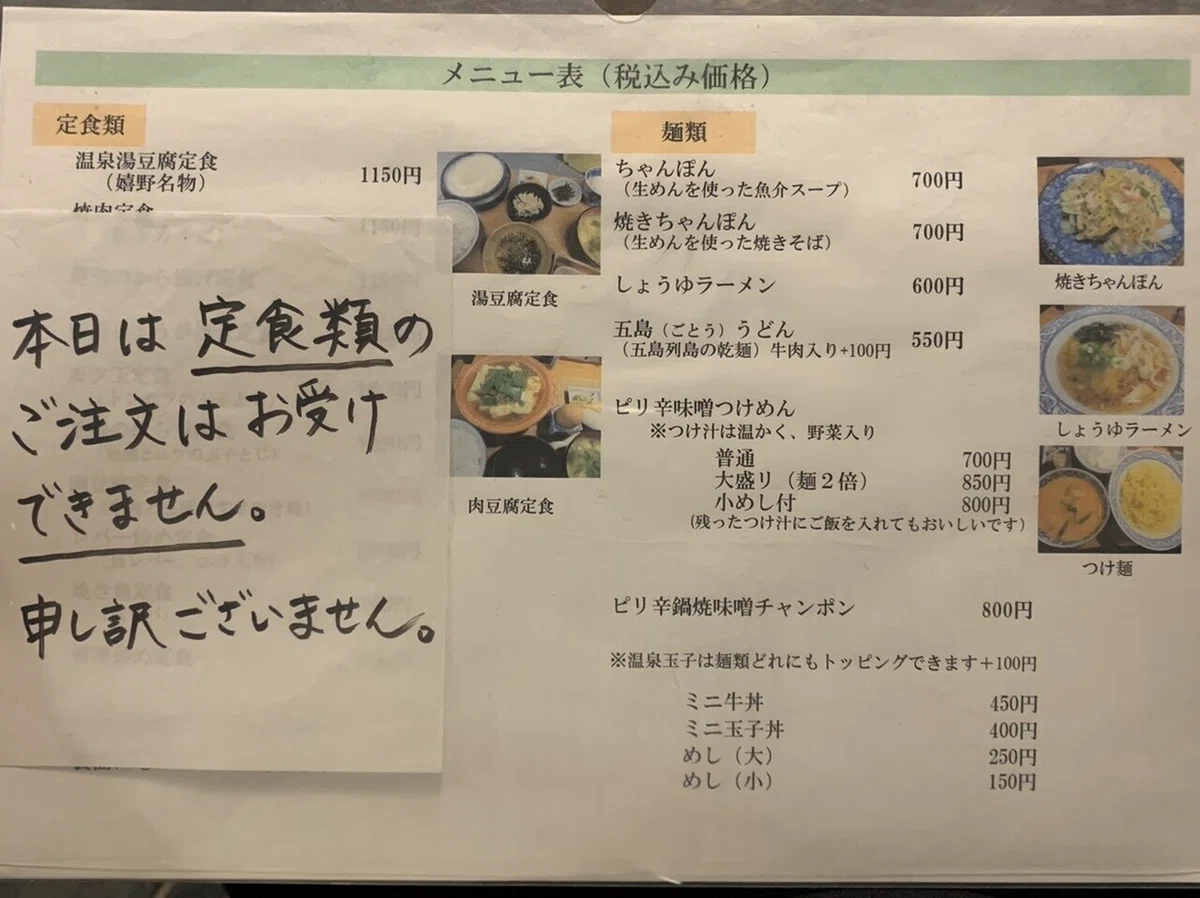 メニュー表（税込み価格）
定食類
温泉湯豆腐定食 1150円
（嬉野名物）
焼肉定食
本日は 定食類の
ご注文は お受け
できません。
申し訳ございません。
湯豆腐定食
肉豆腐定食
麺類
ちゃんぽん 700円
（生めんを使った魚介スープ）
焼きちゃんぽん 700円
（生めんを使った焼きそば）
しょうゆラーメン 600円
五島（ごとう）うどん 550円
（五島列島の乾麺）牛肉入り+100円
ピリ辛味噌つけめん
※つけ汁は温かく、野菜入り
普通 700円
大盛リ（麺２倍） 850円
小めし付 800円
（残ったつけ汁にご飯を入れてもおいしいです）
ピリ辛鍋焼味噌チャンポン 800円
※温泉玉子は麺類どれにもトッピングできます＋100円
ミニ牛丼 450円
ミニ玉子丼 400円
めし（大） 250円
めし（小） 150円
焼きちゃんぽん
しょうゆラーメン
つけ麺